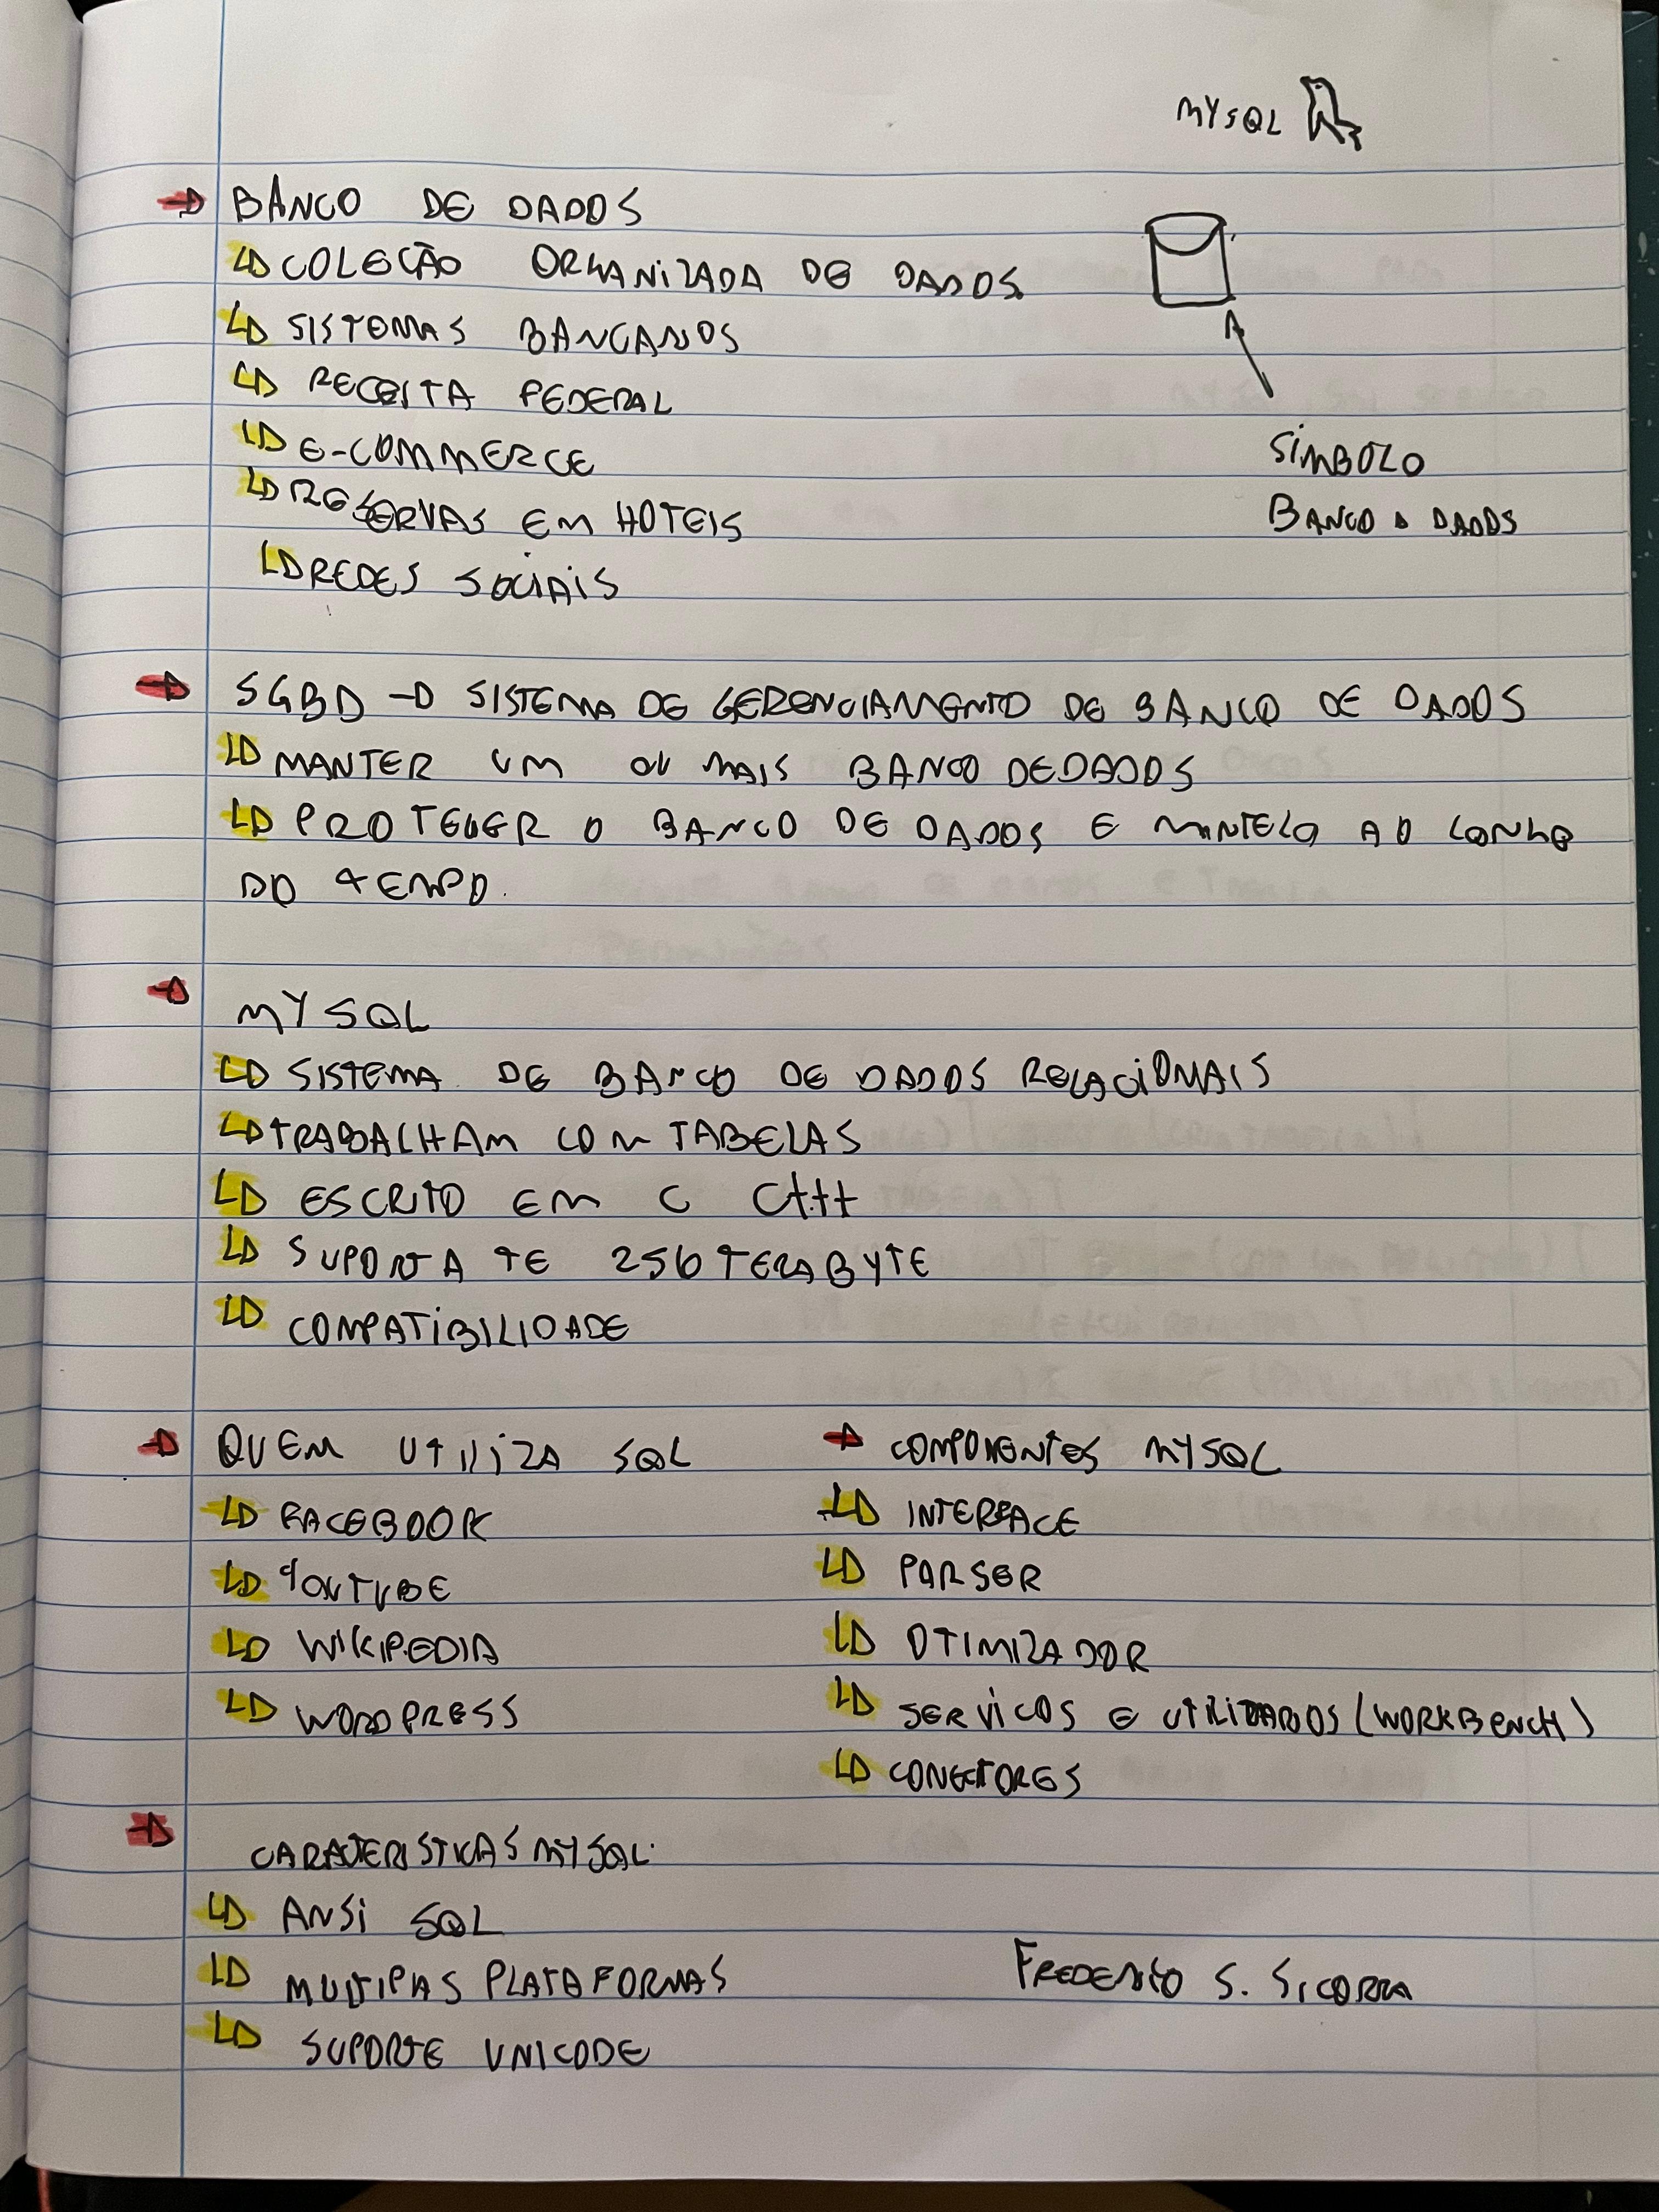 MYSQL
→ BANCO DE DADOS
↳ COLEÇÃO ORGANIZADA DE DADOS.
↳ SISTEMAS BANCARIOS
↳ RECEITA FEDERAL
↳ E-COMMERCE
↳ RESERVAS EM HOTEIS
↳ REDES SOCIAIS
SÍMBOLO
BANCO D DADOS
→ SGBD → SISTEMA DE GERENCIAMENTO DE BANCO DE DADOS
↳ MANTER UM OU MAIS BANCO DE DADOS
↳ PROTEGER O BANCO DE DADOS E MANTELO AO LONGO
DO TEMPO.
→ MYSQL
↳ SISTEMA DE BANCO DE DADOS RELACIONAIS
↳ TRABALHAM COM TABELAS
↳ ESCRITO EM C C++
↳ SUPORTA TE 256 TERABYTE
↳ COMPATIBILIDADE
→ QUEM UTILIZA SQL
↳ FACEBOOK
↳ YOUTUBE
↳ WIKIPEDIA
↳ WORDPRESS
→ COMPONENTES MYSQL
↳ INTERFACE
↳ PARSER
↳ OTIMIZADOR
↳ SERVICOS E UTILITARIOS (WORKBENCH)
↳ CONECTORES
→ CARACTERISTICAS MYSQL.
↳ ANSI SQL
↳ MULTIPLAS PLATAFORMAS
↳ SUPORTE UNICODE
FREDERICO S. SICORRA